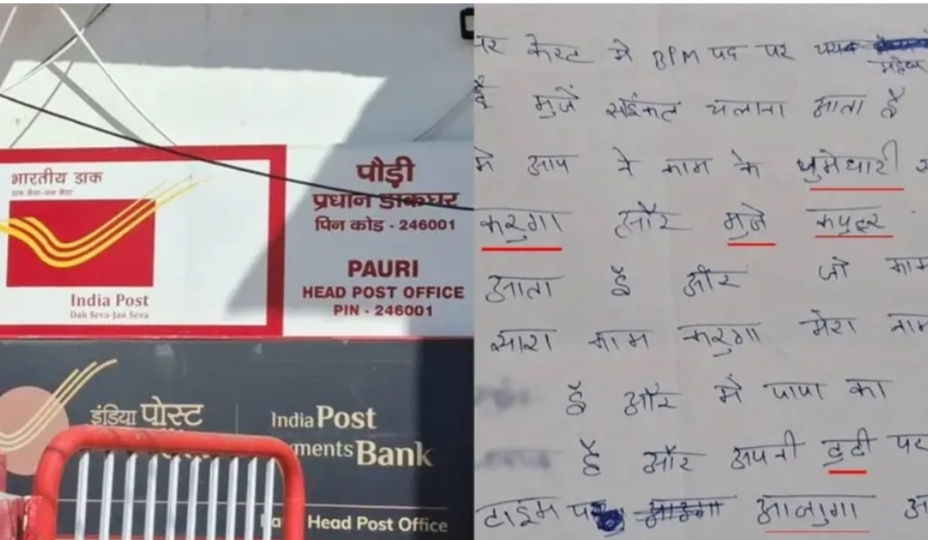 भारतीय डाक
डाक सेवा-जन सेवा
India Post
Dak Seva-Jan Seva
पौड़ी
प्रधान डाकघर
पिन कोड - 246001
PAURI
HEAD POST OFFICE
PIN - 246001
इंडिया पोस्ट
India Post
ments Bank
Head Post Office
पर केस्ट मे BPM पद पर
है मुजें साईकल चलाना आता है
मे आप ने काम के
करुगा और मुजे कपुटर
आता है और जो काम
सारा काम करुगा मेरा नाम
है और मे पापा का
है और अपनी डुटी पर
टाइम पर आलुगा